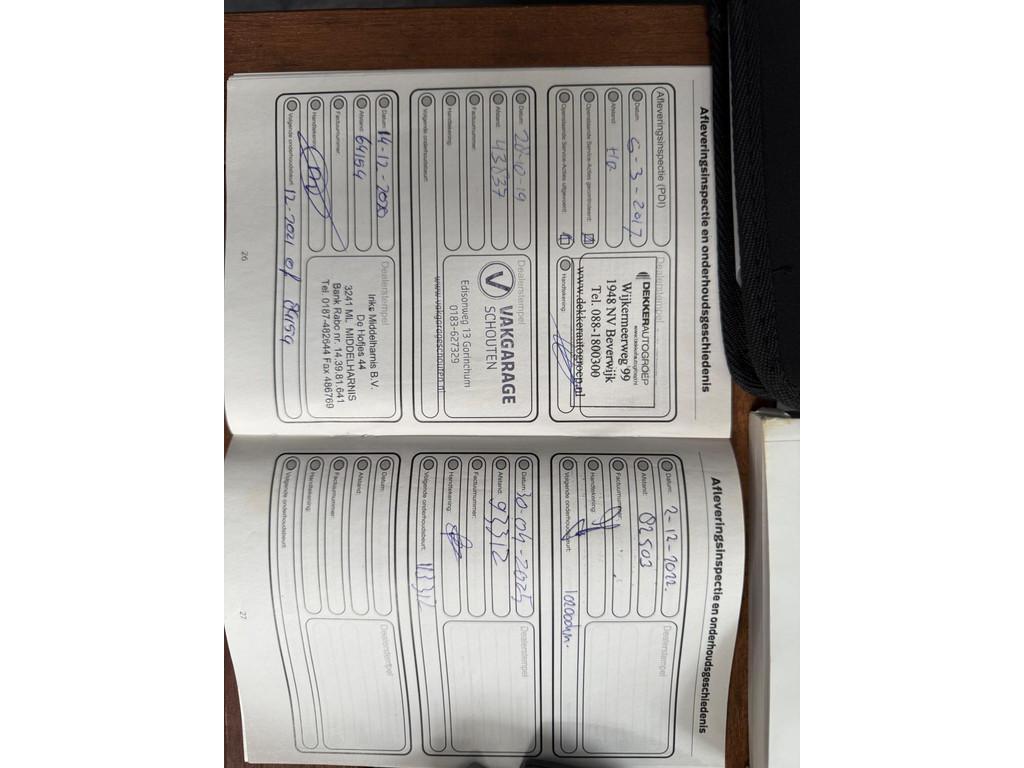 Afleveringsinspectie en onderhoudsgeschiedenis
Afleveringsinspectie (PDI)
Datum: 6-3-2017
Afstand:
Openstaande Service-Acties gecontroleerd:
Openstaande Service-Acties uitgevoerd:
Dealerstempel
DEKKERAUTOGROEP
Wijkermeerweg 99
1948 NV Beverwijk
Tel. 088-1800300
www.dekkerautogroep.nl
Handtekening:
Datum: 28-10-19
Afstand: 43837
Factuurnummer:
Handtekening:
Volgende onderhoudsbeurt:
Dealerstempel
VAKGARAGE
SCHOUTEN
Edisonweg 13 Gorinchum
0183-627329
www.vakgarageschouten.nl
Datum: 14-12-2020
Afstand: 64154
Factuurnummer:
Handtekening:
Volgende onderhoudsbeurt: 12-2021 of 84154
Dealerstempel
Inko Middelharnis B.V.
De Hofjes 44
3241 ML MIDDELHARNIS
Bank Rabo nr. 14.39.81.641
Tel. 0187-482644 Fax 486769
26
Afleveringsinspectie en onderhoudsgeschiedenis
Datum: 2-12-2022.
Afstand: 82503
Factuurnummer:
Handtekening:
Volgende onderhoudsbeurt:
Dealerstempel
Datum: 30-04-2025
Afstand: 93312
Factuurnummer:
Handtekening:
Volgende onderhoudsbeurt: 113312
Dealerstempel
Datum:
Afstand:
Factuurnummer:
Handtekening:
Volgende onderhoudsbeurt:
Dealerstempel
27